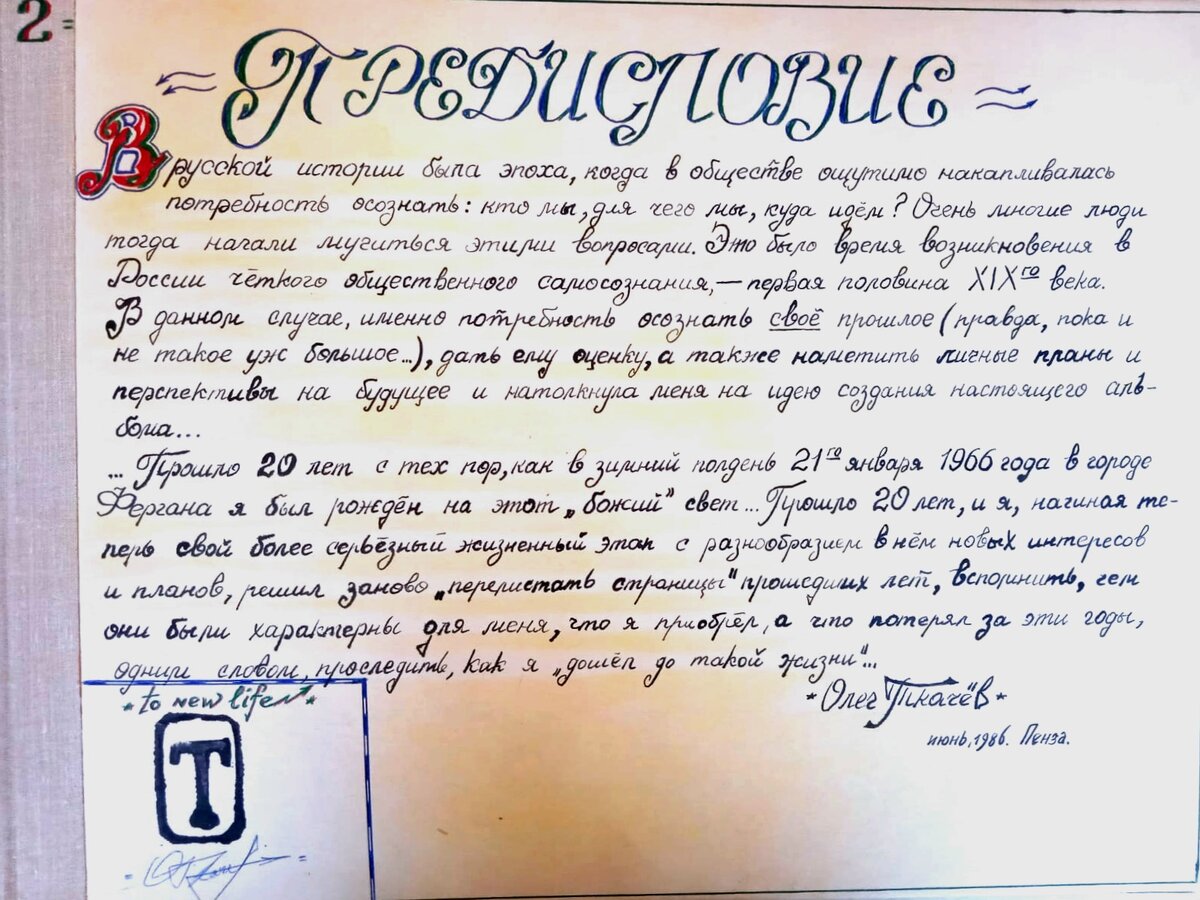 2=
ПРЕДИСЛОВИЕ
В русской истории была эпоха, когда в обществе ощутимо накапливалась
потребность осознать: кто мы, для чего мы, куда идём? Очень многие люди
тогда начали мучиться этими вопросами. Это было время возникновения в
России чёткого общественного самосознания, — первая половина XIXго века.
В данном случае, именно потребность осознать своё прошлое (правда, пока и
не такое уж большое...), дать ему оценку, а также наметить личные планы и
перспективы на будущее и натолкнула меня на идею создания настоящего аль-
бома...
... Прошло 20 лет с тех пор, как в зимний полдень 21го января 1966 года в городе
Фергана я был рождён на этот „божий" свет... Прошло 20 лет, и я, начиная те-
перь свой более серьёзный жизненный этап с разнообразием в нём новых интересов
и планов, решил заново „перелистать страницы" прошедших лет, вспомнить, чем
они были характерны для меня, что я приобрёл, а что потерял за эти годы,
одним словом, проследить, как я „дошёл до такой жизни"...
* Олег Ткачёв *
июнь, 1986. Пенза.
* to new life *
Т